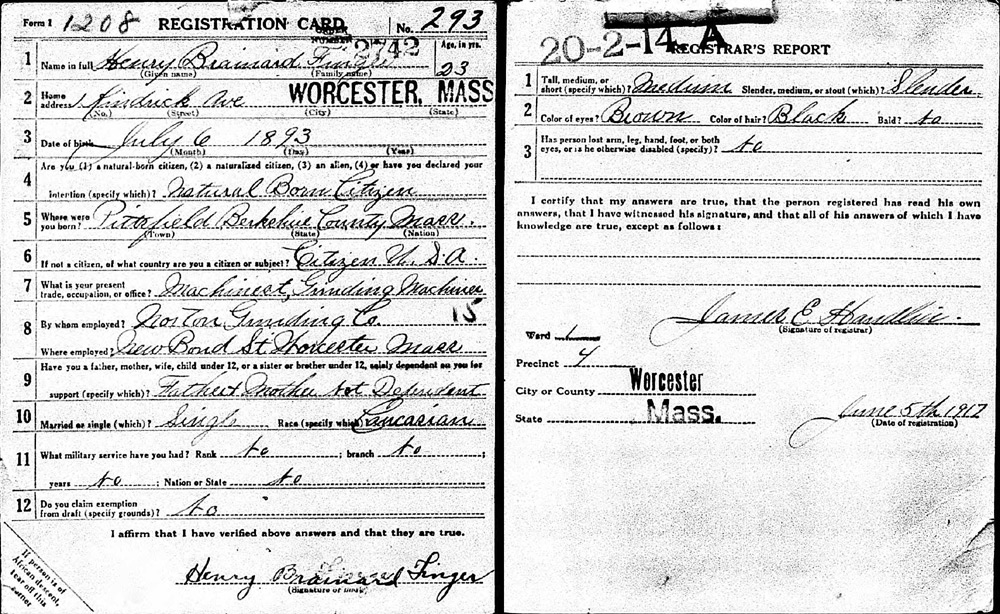 Form 1 1208 REGISTRATION CARD No. 293
ORDER NUMBER 2742 Age, in yrs.
1 Name in full Henry Brainard Finger 23
(Given name) (Family name)
2 Home address Kindrick Ave WORCESTER, MASS
(No.) (Street) (City) (State)
3 Date of birth July 6 1893
(Month) (Day) (Year)
Are you (1) a natural-born citizen, (2) a naturalized citizen, (3) an alien, (4) or have you declared your
4 intention (specify which)? Natural Born Citizen
5 Where were you born? Pittsfield Berkshire County Mass.
(Town) (State) (Nation)
6 If not a citizen, of what country are you a citizen or subject? Citizen U.S.A.
7 What is your present trade, occupation, or office? Machinest, Grinding Machines
15
8 By whom employed? Norton Grinding Co.
Where employed? New Bond St Worcester Mass
Have you a father, mother, wife, child under 12, or a sister or brother under 12, solely dependent on you for
9 support (specify which)? Father & Mother Not Dependent
10 Married or single (which)? Single Race (specify which)? Caucasian
11 What military service have you had? Rank No ; branch No ;
years No ; Nation or State No
12 Do you claim exemption from draft (specify grounds)? No
I affirm that I have verified above answers and that they are true.
Henry Brainard Finger
(Signature or mark)
If person is of African descent, tear off this corner
20-2-14 A
REGISTRAR'S REPORT
1 Tall, medium, or short (specify which)? Medium Slender, medium, or stout (which)? Slender.
2 Color of eyes? Brown Color of hair? Black Bald? No
3 Has person lost arm, leg, hand, foot, or both eyes, or is he otherwise disabled (specify)? No
I certify that my answers are true, that the person registered has read his own
answers, that I have witnessed his signature, and that all of his answers of which I have
knowledge are true, except as follows:
James E. Handlin.
(Signature of registrar)
Ward 1
Precinct 4
City or County Worcester
State Mass.
June 5th 1917
(Date of registration)